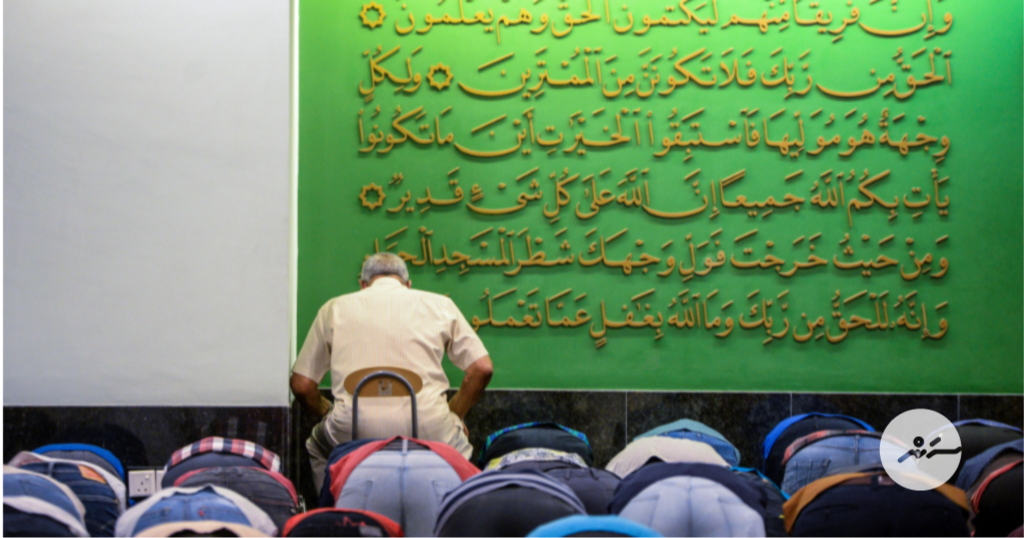 وَإِنَّ فَرِيقًا مِّنْهُمْ لَيَكْتُمُونَ الْحَقَّ وَهُمْ يَعْلَمُونَ ۝
اَلْحَقُّ مِن رَّبِّكَ فَلَا تَكُونَنَّ مِنَ الْمُمْتَرِينَ ۝ وَلِكُلٍّ
وِجْهَةٌ هُوَ مُوَلِّيهَا فَاسْتَبِقُوا الْخَيْرَٰتِ أَيْنَ مَا تَكُونُوا
يَأْتِ بِكُمُ اللَّهُ جَمِيعًا إِنَّ اللَّهَ عَلَىٰ كُلِّ شَيْءٍ قَدِيرٌ ۝
وَمِنْ حَيْثُ خَرَجْتَ فَوَلِّ وَجْهَكَ شَطْرَ الْمَسْجِدِ
وَإِنَّهُ لَلْحَقُّ مِن رَّبِّكَ وَمَا اللَّهُ بِغَٰفِلٍ عَمَّا